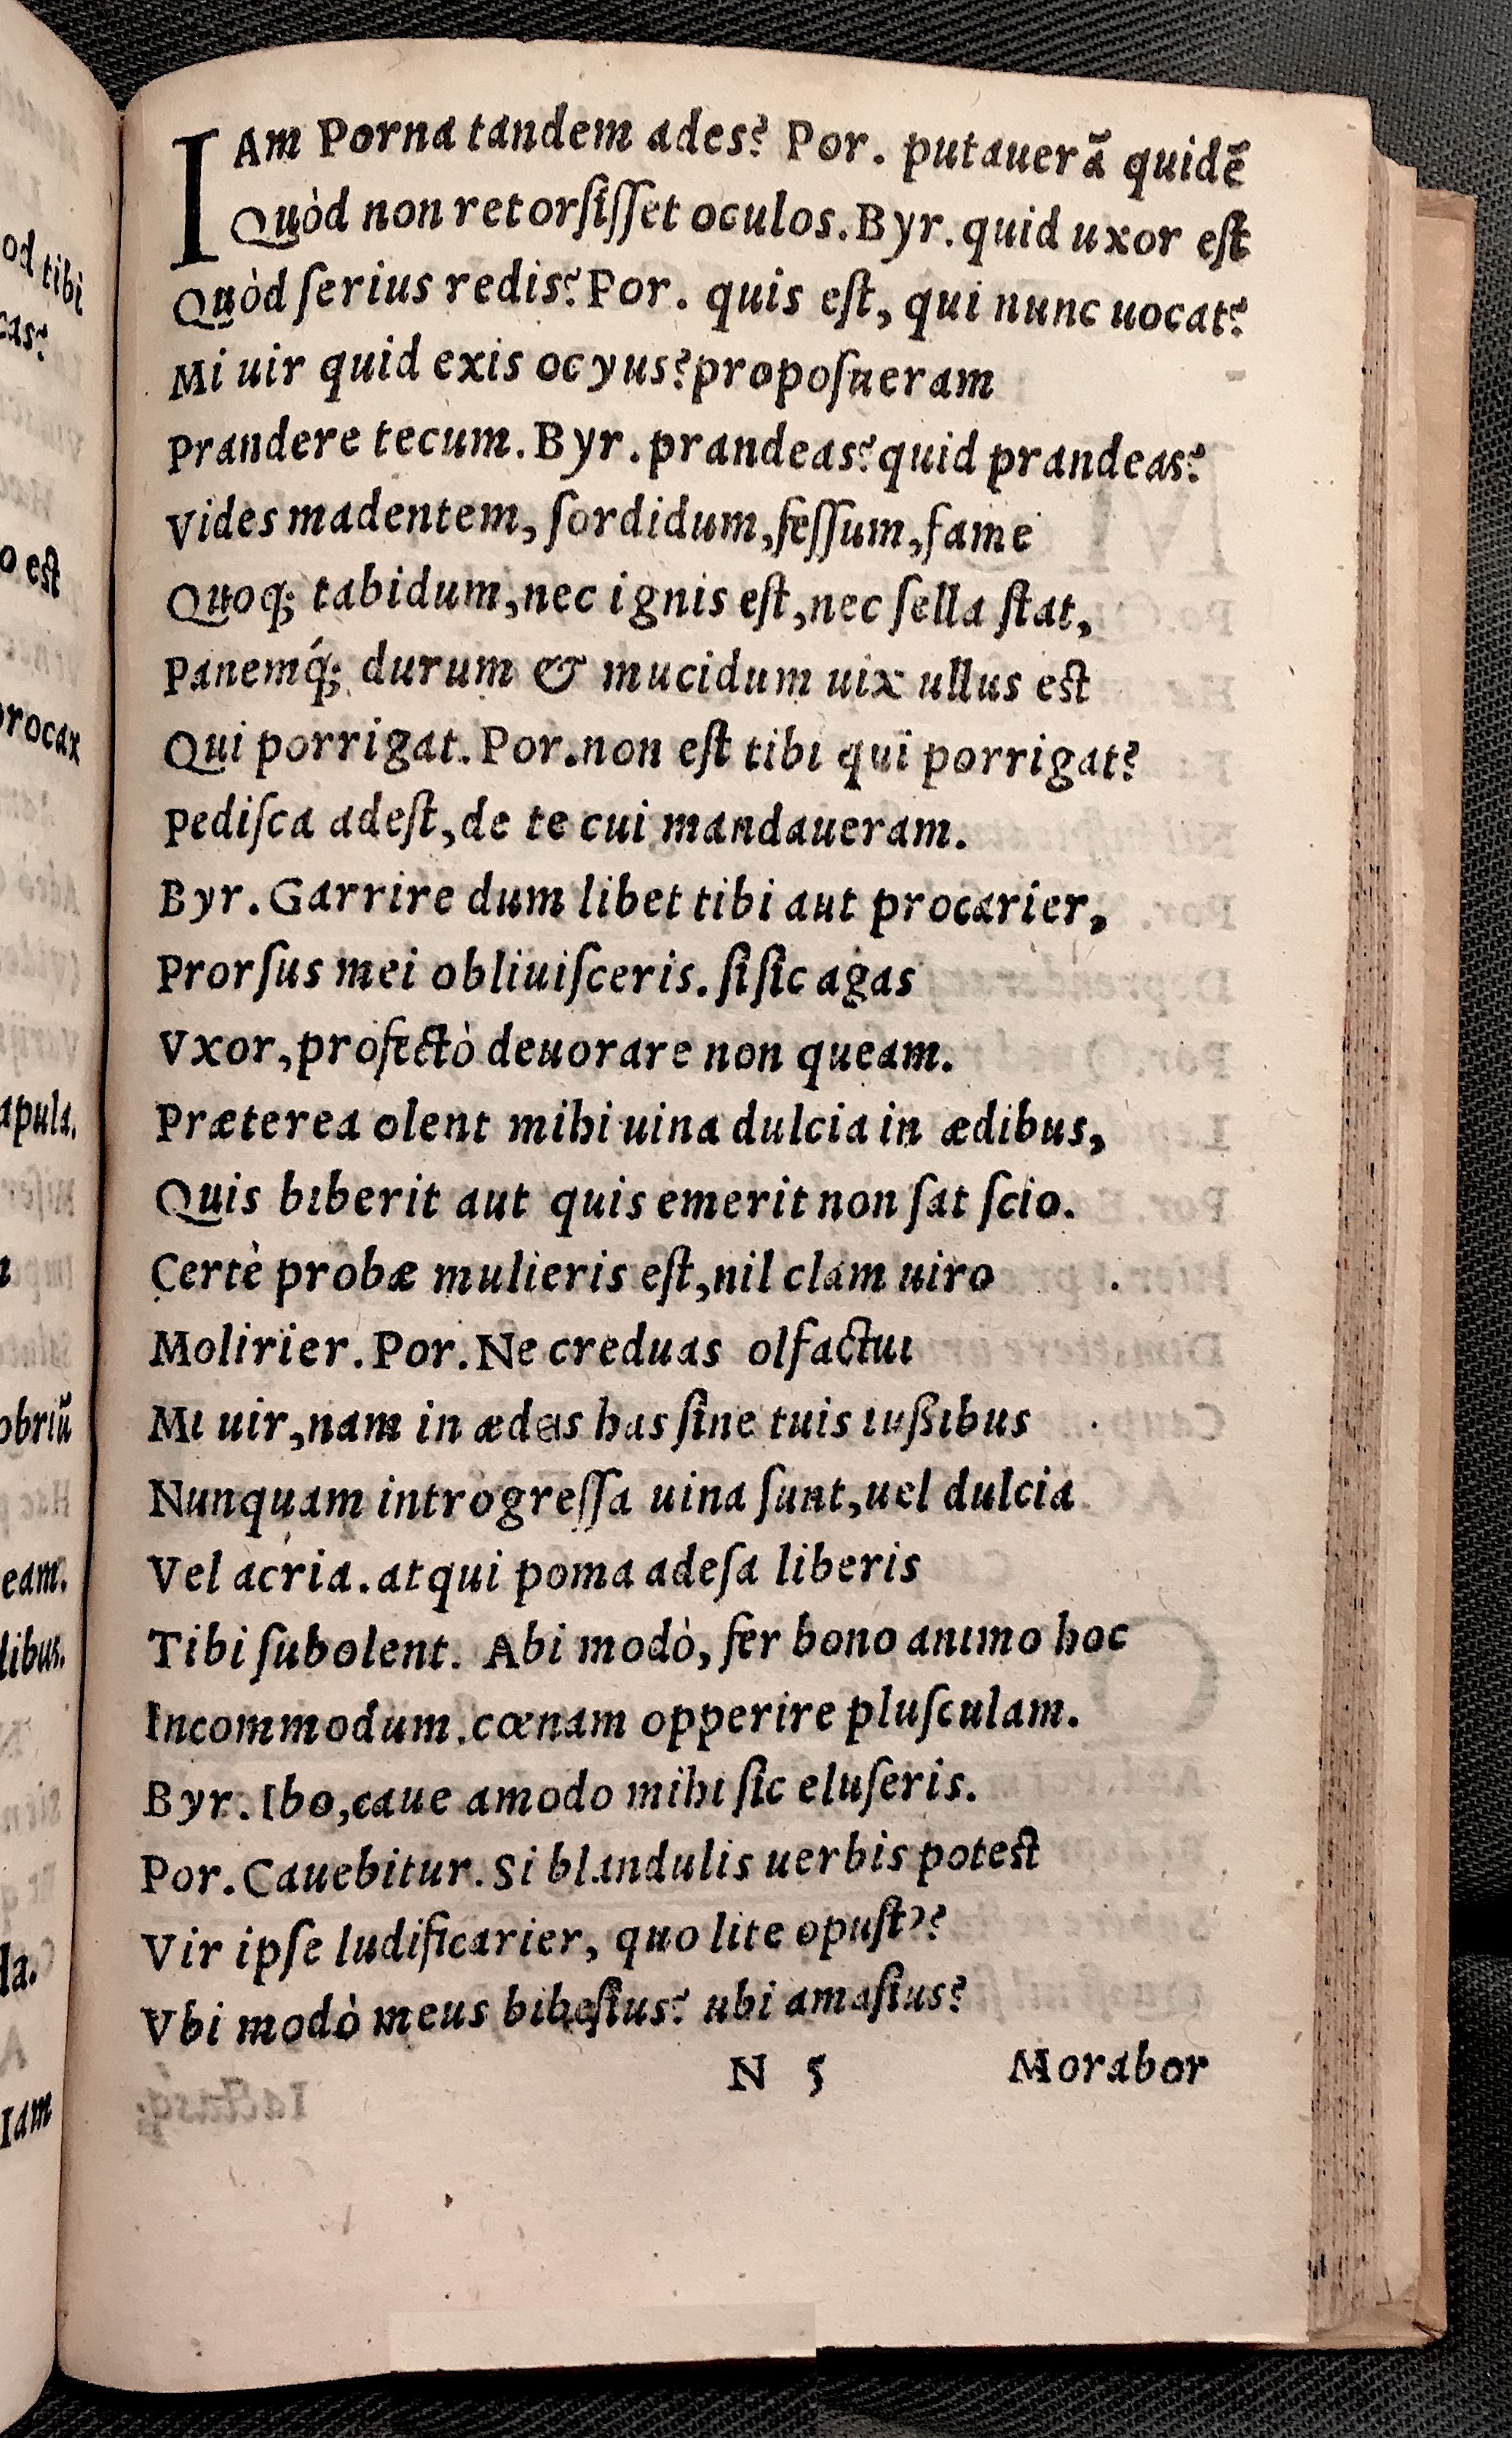 IAm Porna tandem ades? Por. putauerã quidẽ
Quòd non retorſiſſet oculos. Byr. quid uxor eſt
Quòd ſerius redis? Por. quis eſt, qui nunc uocat?
Mi uir quid exis ocyus? propoſueram
Prandere tecum. Byr. prandeas? quid prandeas?
Vides madentem, ſordidum, feſſum, fame
Quoq; tabidum, nec ignis eſt, nec ſella ſtat,
Panemq́; durum & mucidum uix ullus eſt
Qui porrigat. Por. non eſt tibi qui porrigat?
Pediſca adeſt, de te cui mandaueram.
Byr. Garrire dum libet tibi aut procarier,
Prorſus mei obliuiſceris. ſi ſic agas
Vxor, profectò deuorare non queam.
Præterea olent mihi uina dulcia in ædibus,
Quis biberit aut quis emerit non ſat ſcio.
Certè probæ mulieris eſt, nil clam uiro
Molirier. Por. Ne creduas olfactui
Mi uir, nam in ædeis has ſine tuis iußibus
Nunquam introgreſſa uina ſunt, uel dulcia
Vel acria. atqui poma adeſa liberis
Tibi ſubolent. Abi modò, fer bono animo hoc
Incommodum. cœnam opperire pluſculam.
Byr. Ibo, caue amodo mihi ſic eluſeris.
Por. Cauebitur. Si blandulis uerbis poteſt
Vir ipſe ludificarier, quo lite opuſt'?
Vbi modò meus bibeſius? ubi amaſius?
N 5 Morabor
od tibi
cas?
o eſt
procax
apula.
obriũ
eam.
libus.
la.
Iam